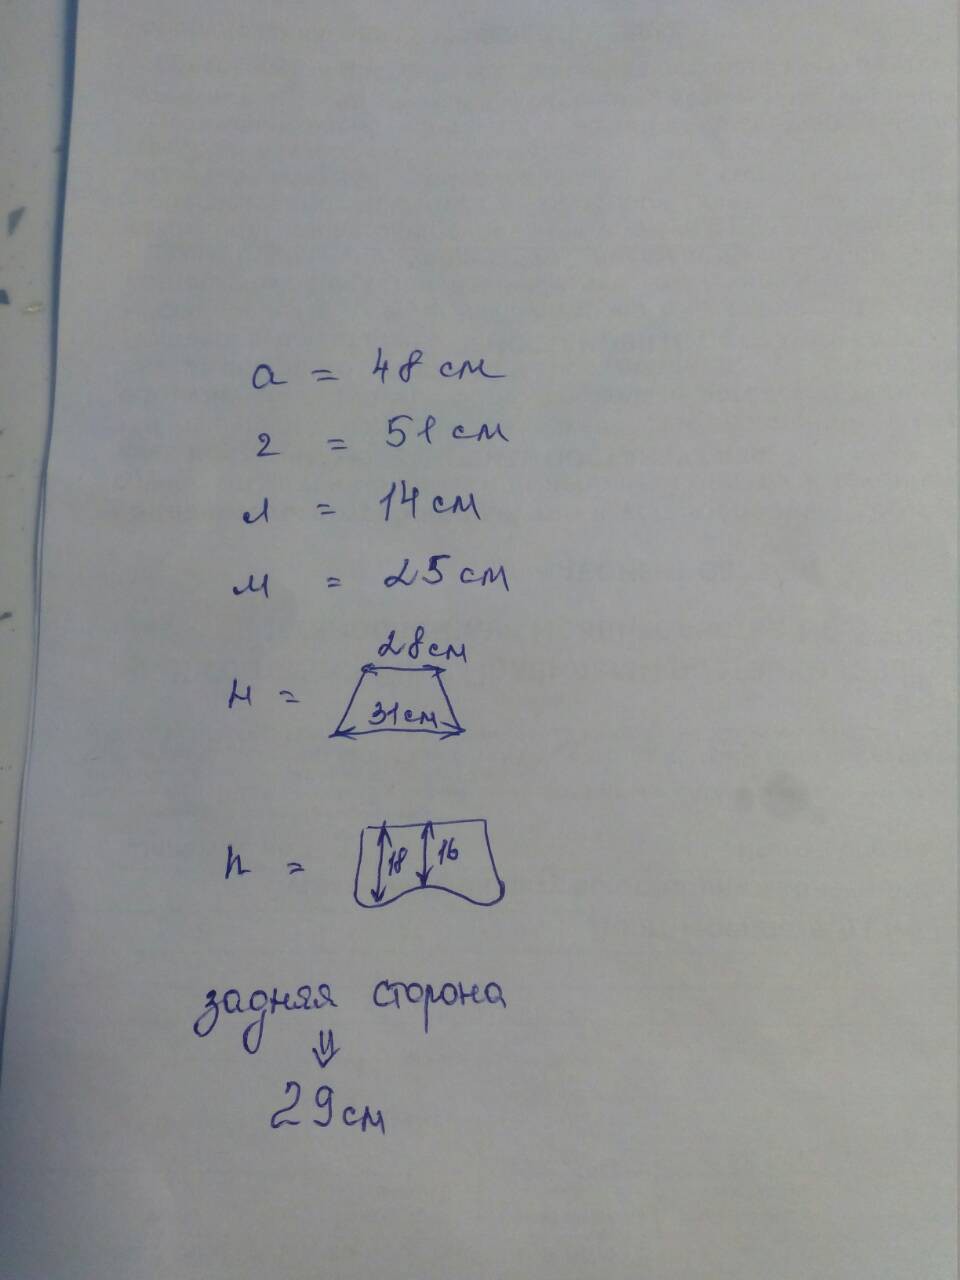 а = 48 см
г = 51 см
л = 14 см
м = 25 см
28 см
н =
31 см
п =
18
16
задняя сторона
29 см